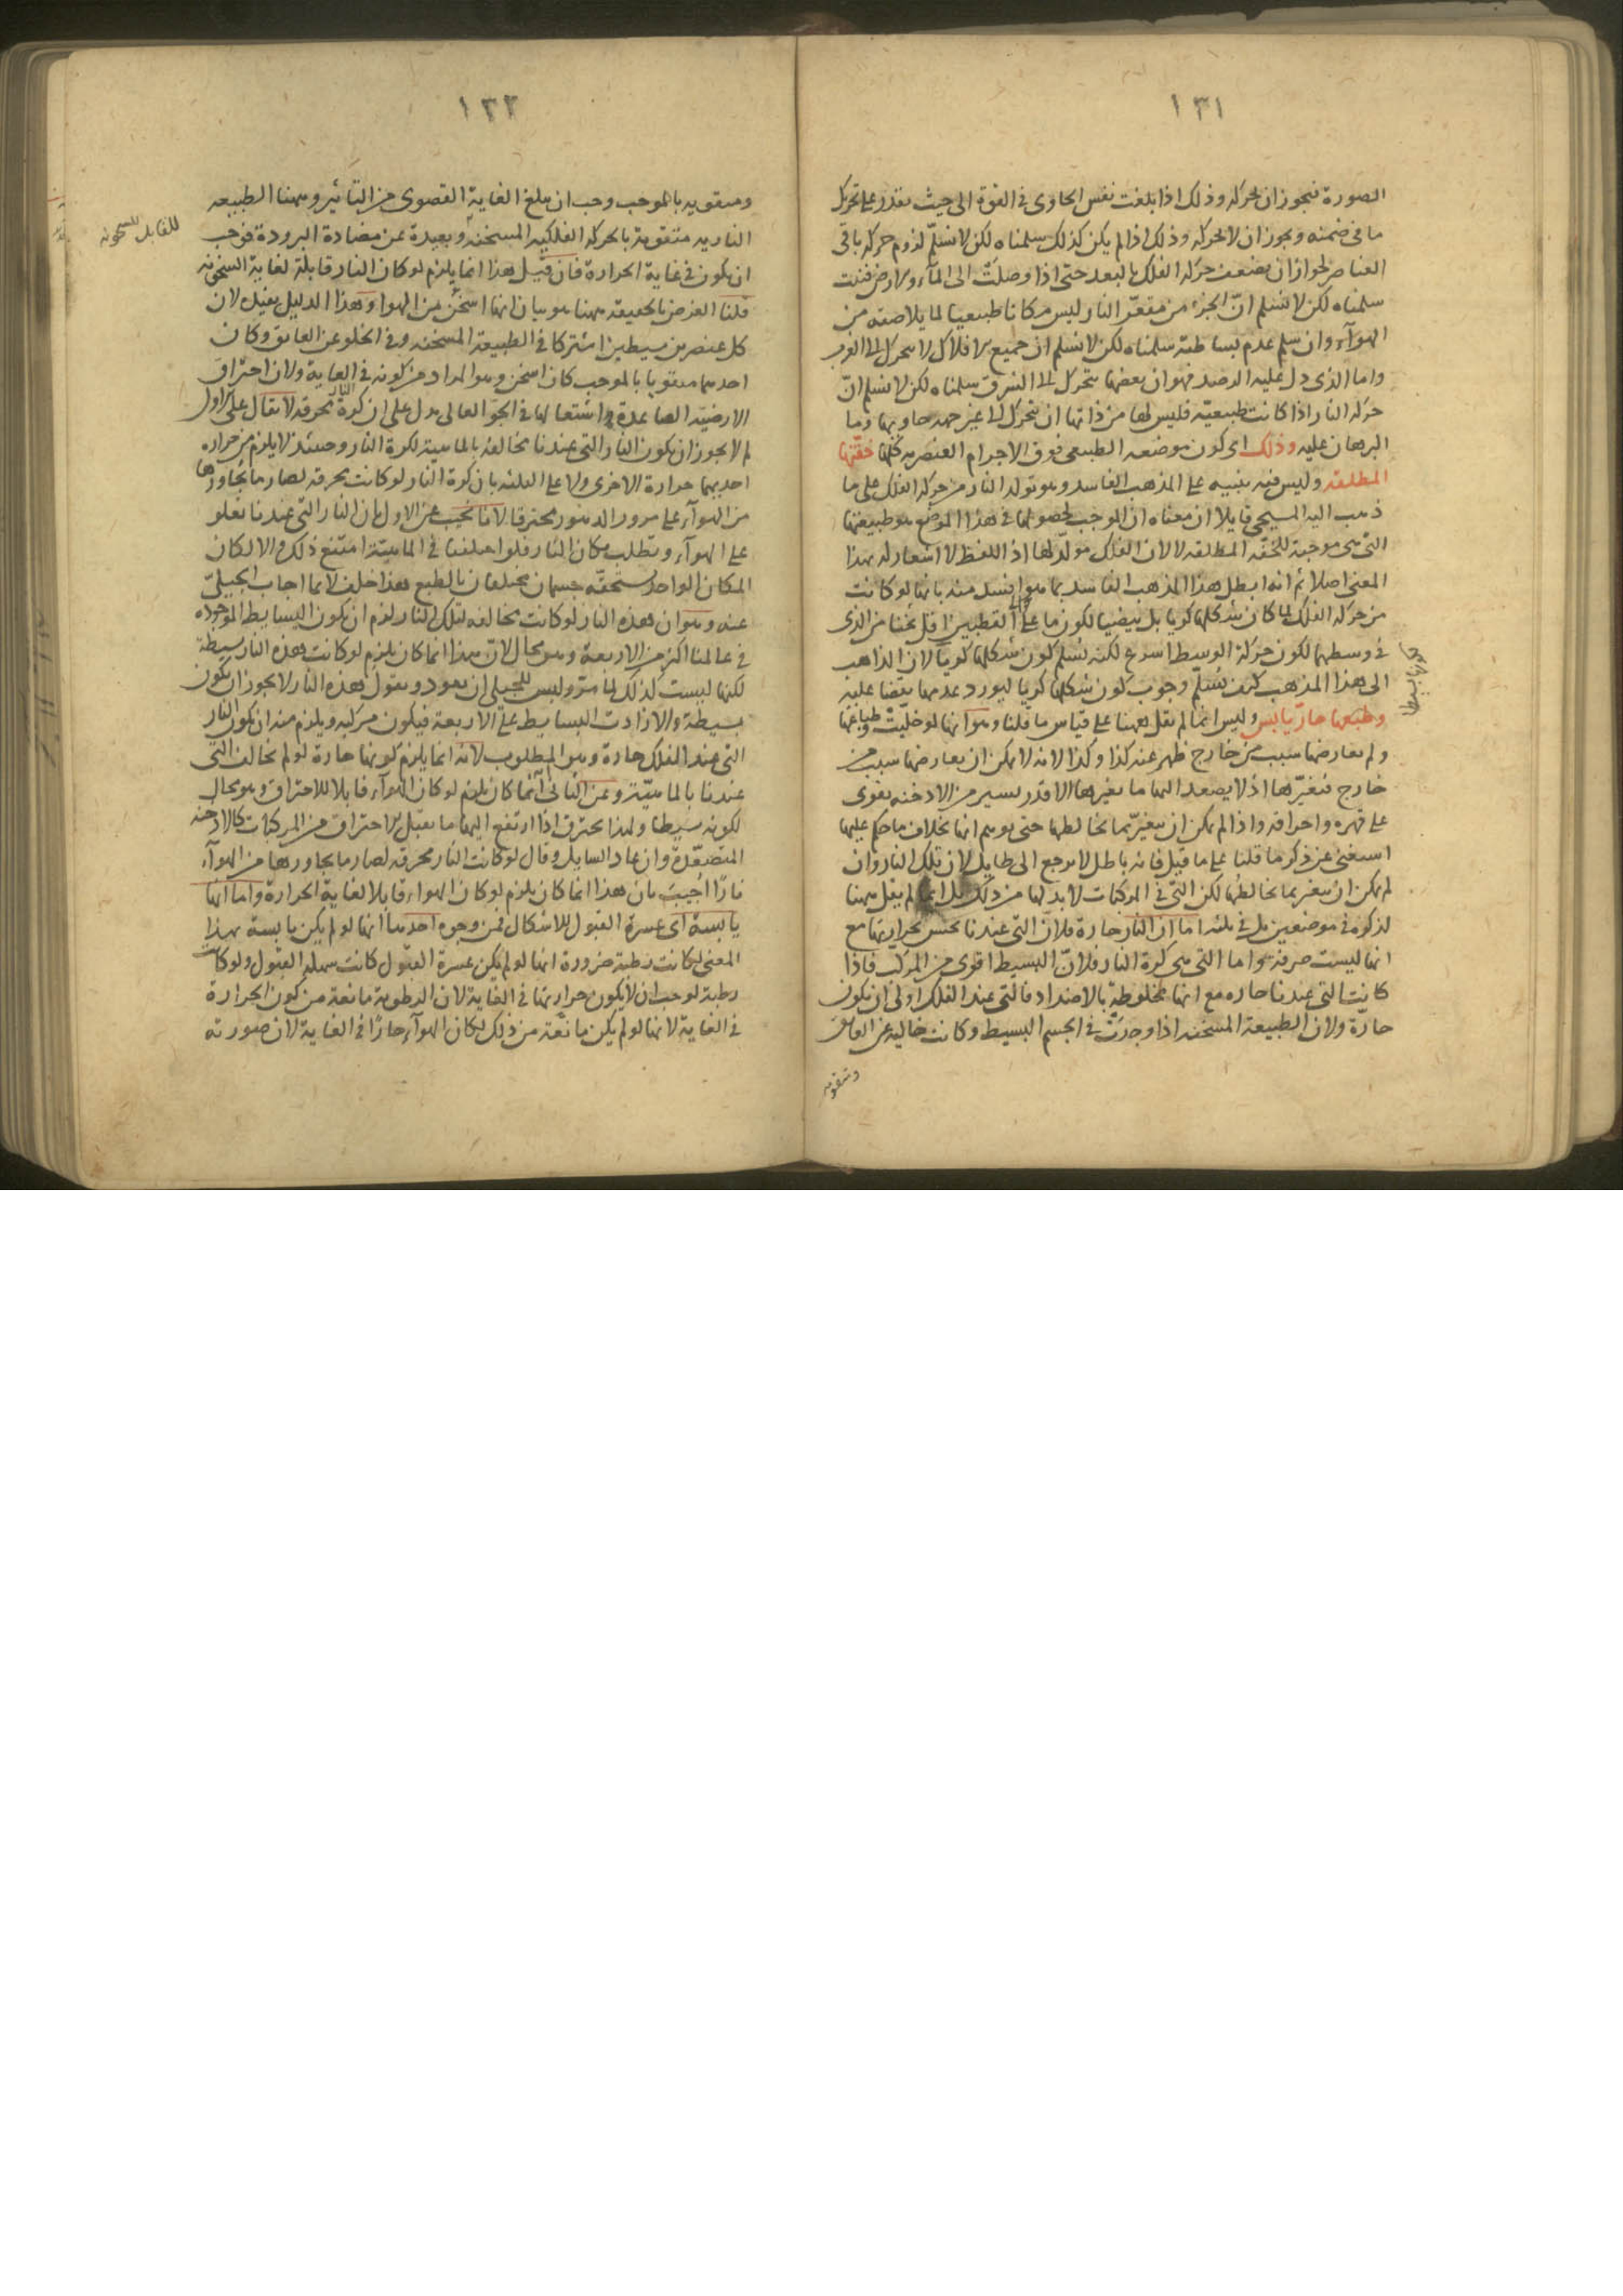 ١٣١
الصورة فيجوز ان يحركه وذلك اذا بلغت نفس الحاوى فى القوة الى حيث تقدر على تحريك
ما فى ضمنه ويجوز ان لا يحركه وذلك اذا لم يكن كذلك سلمناه لكن لا نسلّم لزوم حركة باقى
العناصر لجواز ان يضعف حركة الفلك بالبعد حتى اذا وصلت الى الماء والارض فنيت
سلمناه لكن لا نسلم انّ الجزء من مقعّر النار ليس مكانا طبيعيا لما يلاصقه من
الهوآء وان سلم عدم بساطته سلمناه لكن لا نسلم ان جميع الافلاك لا يتحرك الى الغرب
واما الذى دل عليه الرصد فهو ان بعضها يتحرك الى الشرق سلمناه لكن لا نسلم انّ
حركة النار اذا كانت طبيعيّة فليس لها من ذاتها ان تتحرك الى غير جهة حاويها وما
البرهان عليه وذلك اى كون موضعه الطبيعى فوق الاجرام العنصرية كلها خفّتها
المطلقة وليس فيه تنبيه على المذهب الفاسد وهو تولد النار من حركة الفلك على ما
ذهب اليه المسيحى قايلا ان معناه ان الموجب لحصولها فى هذا الموضع هو طبيعتها
التى هى موجبة للخفّة المطلقة لا لان الفلك مولّد لها اذ اللفظ لا اشعار له بهذا
المعنى اصلا ثم انه ابطل هذا المذهب الفاسد بما هو افسد منه بانها لو كانت
من حركة الفلك لما كان شكلها كريا بل بيضيا لكون ما على القطبين اقل ثخنا من الذى
فى وسطهما لكون حركة الوسط اسرع لكنه نسلم كون شكلها كريا لان الذاهب
الى هذا المذهب كيف يُسلّم وجوب كون شكلها كريا ليورد عدمها نقضا عليه
وطبعها حارّ يابس وليس انما لم يقل ههنا على قياس ما قلنا وهو انها لو خلّيت وطباعها
ولم يعارضها سبب من خارج ظهر عنه كذا وكذا لانه لا يمكن ان يعارضها سبب من
خارج فتغيّرها اذ لا يصعد اليها ما يغيرها الا قدر يسير من الادخنة يقوى
على قهره واحراقه واذا لم يمكن ان يتغيّر بما يخالطها حتى يوهم انها بخلاف ما حكم عليها
استغنى عن ذكر ما قلنا على ما قيل فانه باطل لا يرجع الى طايل لان تلك النار وان
لم يمكن ان يتغير بما يخالطها لكن التى فى المركبات لا بد لها من ذلك بل انما لم يقل ههنا
لذكره فى موضعين بل فى ثلثة اما ان النار حارة فلانّ التى عندنا نحس بحرارتها مع
انها ليست صرفة واما التى هى كرة النار فلانّ البسيط اقوى من المركّب فاذا
كانت التى عندنا حاره مع انها مخلوطة بالاضداد فالتى عند الفلك اولى ان تكون
حارّة ولان الطبيعة المسخنة اذا وجدت فى الجسم البسيط وكانت خالية عن العايق
١٣٢
ومتقوية بالموجب وجب ان يبلغ الغاية القصوى من التأثير وههنا الطبيعة
النارية متقوية بالحركة الفلكية المسخنة وبعيدة عن مضادة البرودة فوجب
ان يكون فى غاية الحرارة فان قيل هذا انما يلزم لو كان النار قابلة لغاية السخونة
قلنا الغرض بالحقيقة ههنا هو بيان انها اسخن من الهوا وهذا الدليل يفيد لان
كل عنصرين بسيطين اشتركا فى الطبيعة المسخنة وفى الخلو عن العايق وكان
احدهما متقويا بالموجب كان اسخن وهو المراد من كونه فى الغاية ولان احتراق
الارضية الصاعدة واشتعالها فى الجو العالى يدل على ان كرة النار محرقة لا يقال على الاول
لم لا يجوز ان يكون النار التى عندنا مخالفة بالماهية لكرة النار وحينئذ لا يلزم من حرارة
احديهما حرارة الاخرى ولا على الثلثة بان كرة النار لو كانت محرقة لصار ما يجاورها
من الهوآء على مرور الدهور محترقا لانا نجيب عن الاول بان النار التى عندنا تعلو
على الهوآء وتطلب مكان النار فلو اختلفتا فى الماهيّة امتنع ذلك والا لكان
المكان الواحد يستحقّه جسمان مختلفان بالطبع هذا خلف لا بما اجاب الجيلىّ
عنه وهو ان هذه النار لو كانت مخالفة لتلك النار لزم ان يكون البسايط الموجوده
فى عالمنا اكثر من الاربعة وهو محال لانّ هذا انما كان يلزم لو كانت هذه النار بسيطة
لكنها ليست كذلك لما مرّ وليس للجيلى ان يعود ويقول هذه النار لا يجوز ان يكون
بسيطة والا زادت البسايط على الاربعة فيكون مركبة ويلزم منه ان يكون النار
التى عند الفلك حارة وهو المطلوب لانه انما يلزم كونها حارة لو لم يخالف التى
عندنا بالماهيّة وعن الثانى انما كان يلزم لو كان الهوآء قابلا للاحتراق وهو محال
لكونه بسيطا ولهذا يحترق اذا ارتفع اليها ما يقبل الاحتراق من المركبات كالادخنه
المتصعّدة وان عاد السايل وقال لو كانت النار محرقة لصار ما يجاورها من الهوآء
نارًا اجيب بان هذا انما كان يلزم لو كان الهواء قابلا لغاية الحرارة واما انها
يابسة اى عسرة القبول للاشكال فمن وجوه احدها انها لو لم يكن يابسة بهذا
المعنى لكانت رطبة ضرورة انها لو لم يكن عسرة القبول كانت سهلة القبول ولو كانت
رطبة لوجب ان لا يكون حرارتها فى الغاية لان الرطوبة مانعة من كون الحرارة
فى الغاية لانها لو لم يكن مانعة من ذلك لكان الهوآء حارًا فى الغاية لان صورته